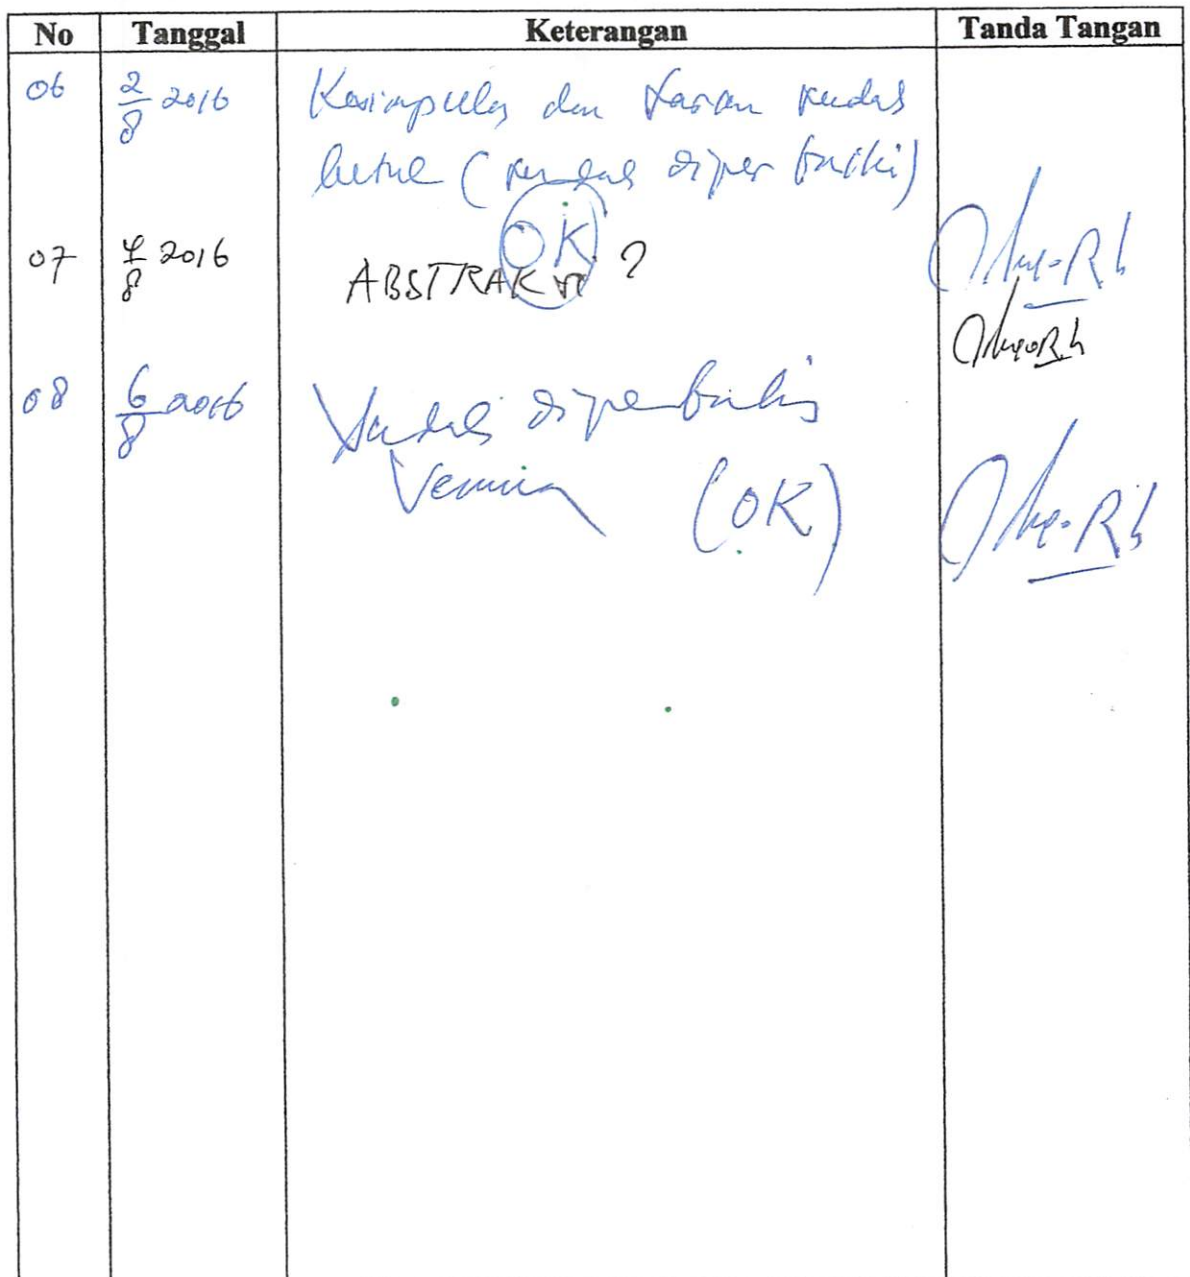 No Tanggal Keterangan Tanda Tangan
06 2/8 2016 Kesimpulan dan Saran sudah
betul (sudah diperbaiki)
OK
07 4/8 2016 ABSTRAK ?
08 6/8 2016 Sudah diperbaiki
semua (OK)